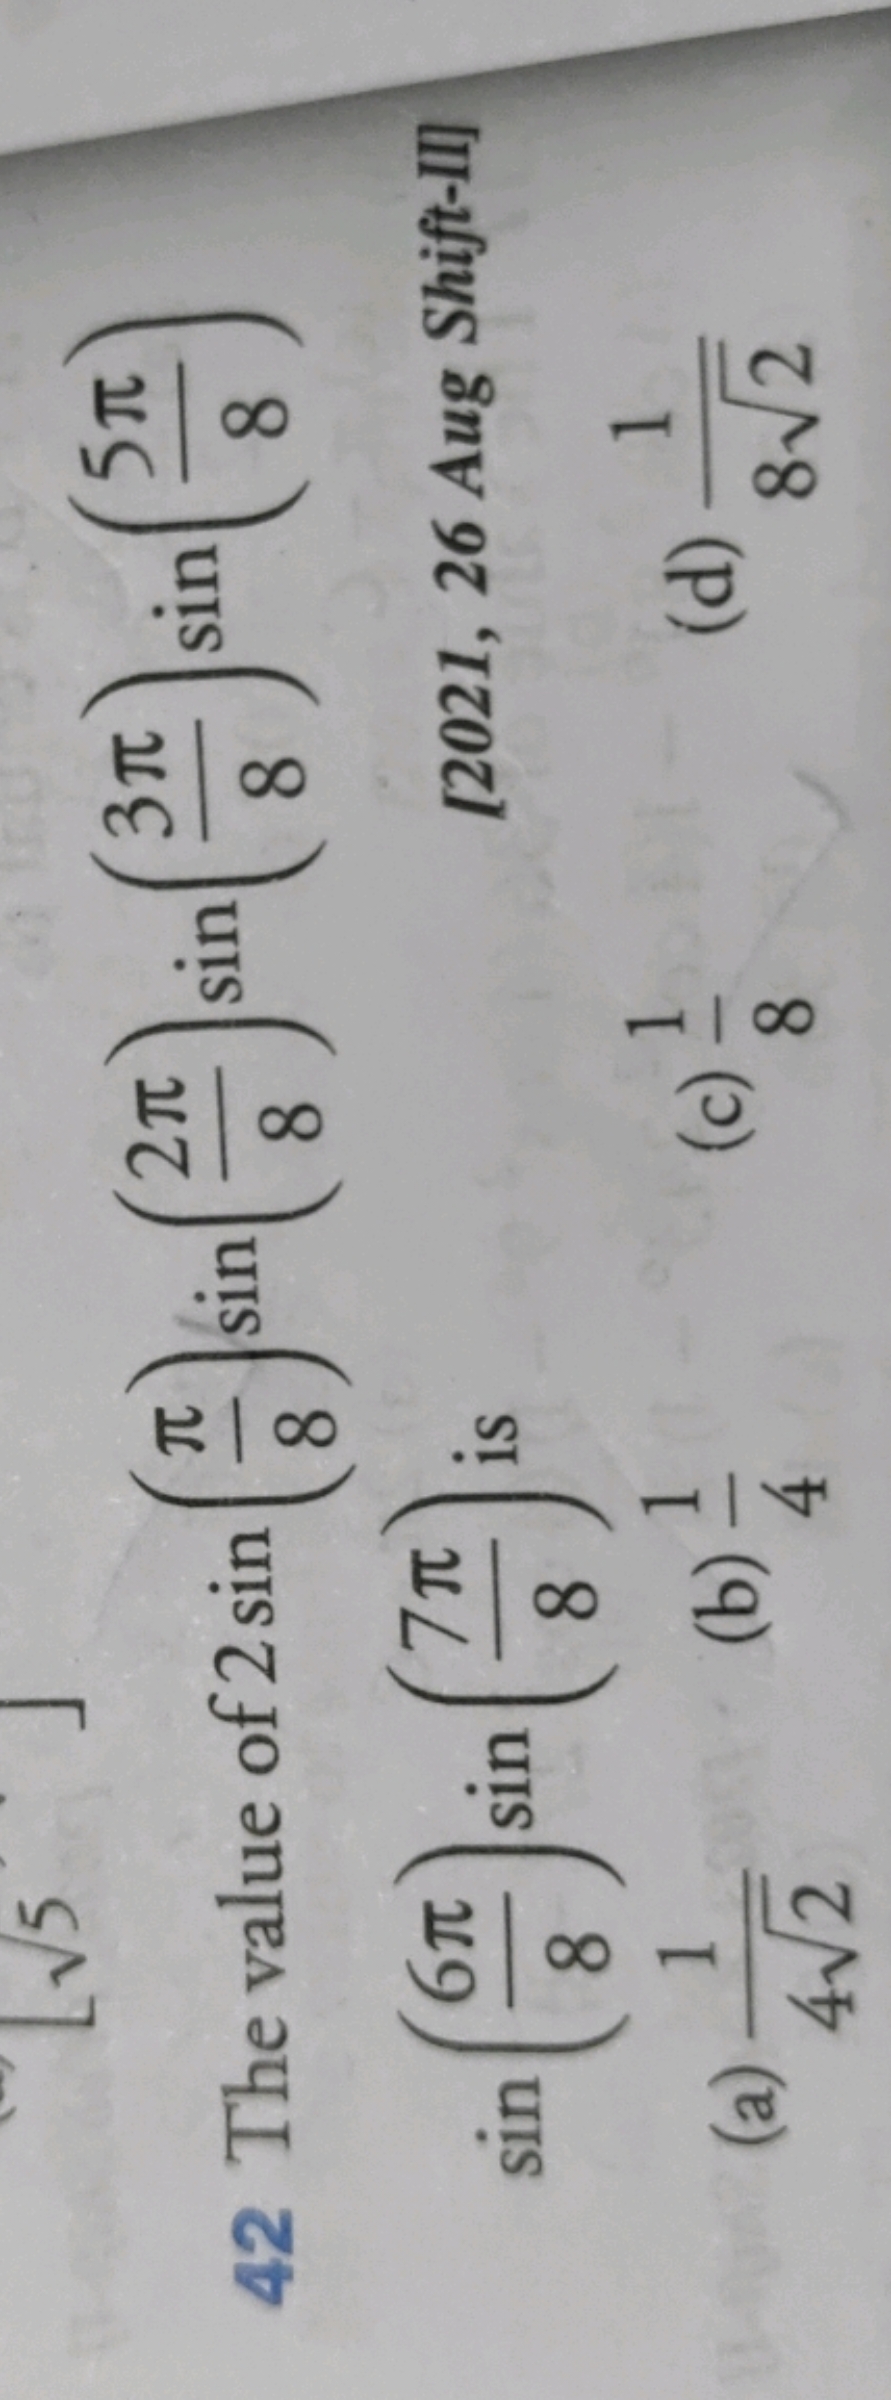 [√5 ]
42 The value of 2 sin(π/8) sin(2π/8) sin(3π/8) sin(5π/8)
sin(6π/8) sin(7π/8) is
[2021, 26 Aug Shift-II]
(a) 1/4√2 (b) 1/4 (c) 1/8 (d) 1/8√2